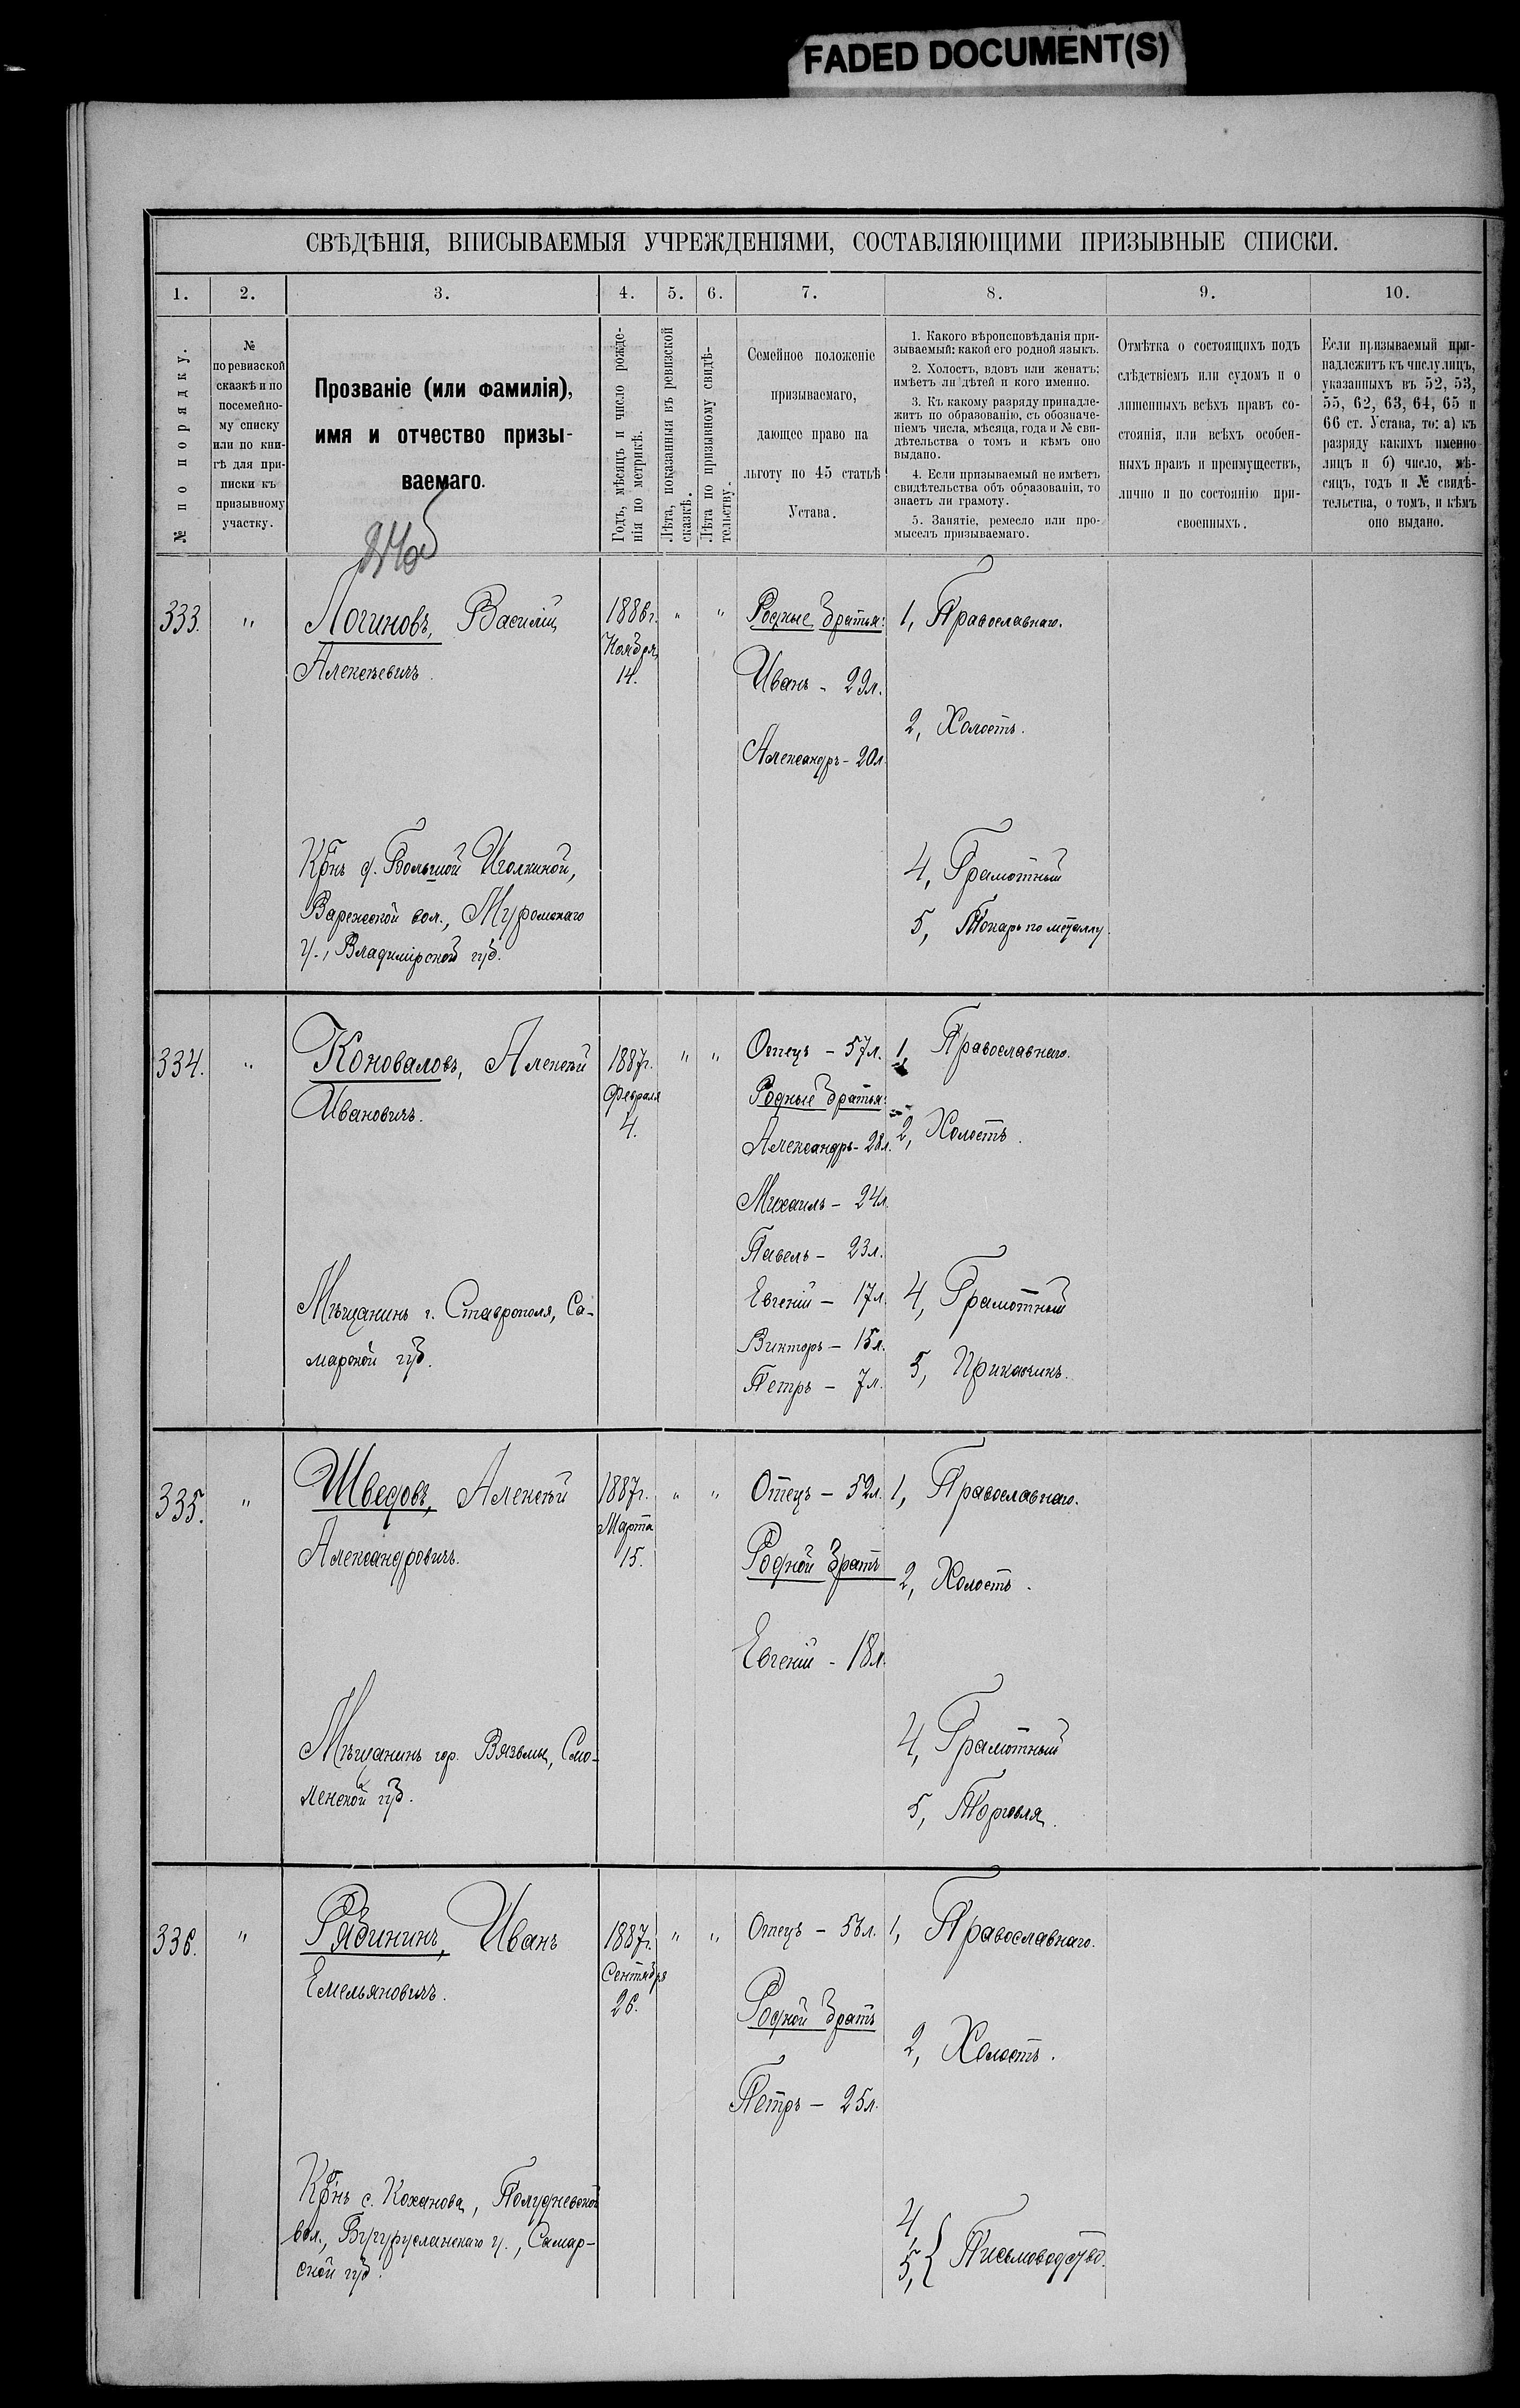 FADED DOCUMENT(S)
СВѢДѢНІЯ, ВПИСЫВАЕМЫЯ УЧРЕЖДЕНІЯМИ, СОСТАВЛЯЮЩИМИ ПРИЗЫВНЫЕ СПИСКИ.
1. 2. 3. 4. 5. 6. 7. 8. 9. 10.
№ по порядку.
№
по ревизской
сказкѣ и по
посемейно-
му списку
или по кни-
гѣ для при-
писки къ
призывному
участку.
Прозваніе (или фамилія),
имя и отчество призы-
ваемаго.
Годъ, мѣсяцъ и число рожде-
нія по метрикѣ.
Лѣта, показанныя въ ревизской
сказкѣ.
Лѣта по призывному свидѣ-
тельству.
Семейное положеніе
призываемаго,
дающее право на
льготу по 45 статьѣ
Устава.
1. Какого вѣроисповѣданія при-
зываемый: какой его родной языкъ.
2. Холостъ, вдовъ или женатъ:
имѣетъ ли дѣтей и кого именно.
3. Къ какому разряду принадле-
житъ по образованію, съ обозначе-
ніемъ числа, мѣсяца, года и № сви-
дѣтельства о томъ и кѣмъ оно
выдано.
4. Если призываемый не имѣетъ
свидѣтельства объ образованіи, то
знаетъ ли грамоту.
5. Занятіе, ремесло или про-
мыселъ призываемаго.
Отмѣтка о состоящихъ подъ
слѣдствіемъ или судомъ и о
лишенныхъ всѣхъ правъ со-
стоянія, или всѣхъ особен-
ныхъ правъ и преимуществъ,
лично и по состоянію при-
своенныхъ.
Если призываемый при-
надлежитъ къ числу лицъ,
указанныхъ въ 52, 53,
55, 62, 63, 64, 65 и
66 ст. Устава, то: а) къ
разряду какихъ именно
лицъ и б) число, мѣ-
сяцъ, годъ и № свидѣ-
тельства, о томъ, и кѣмъ
оно выдано.
333. " Логиновъ, Василій
Алексѣевичъ.
1886 г.
Ноября
14.
" "
Родные братья:
Иванъ - 29 л.
Александръ - 20 л.
1, Православнаго.
2, Холостъ.
Кр-нъ д. Большой Иголкиной,
Варежской вол., Муромскаго
у., Владимірской губ.
4, Грамотный
5, Токарь по металлу.
334. " Коноваловъ, Алексѣй
Ивановичъ.
1887 г.
Февраля
4.
" "
Отецъ - 57 л.
Родные братья:
Александръ - 28 л.
Михаилъ - 24 л.
Павелъ - 23 л.
Евгеній - 17 л.
Викторъ - 15 л.
Петръ - 7 л.
1, Православнаго.
2, Холостъ.
Мѣщанинъ г. Ставрополя, Са-
марской губ.
4, Грамотный
5, Приказчикъ.
335. " Шведовъ, Алексѣй
Александровичъ.
1887 г.
Марта
15.
" "
Отецъ - 52 л.
Родной братъ
Евгеній - 18 л.
1, Православнаго.
2, Холостъ.
Мѣщанинъ гор. Вязьмы, Смо-
ленской губ.
4, Грамотный
5, Торговля.
336. " Рябининъ, Иванъ
Емельяновичъ.
1887 г.
Сентября
26.
" "
Отецъ - 56 л.
Родной братъ
Петръ - 25 л.
1, Православнаго.
2, Холостъ.
Кр-нъ с. Коханова, Полудневской
вол., Бугурусланскаго у., Самар-
ской губ.
4,
5, { Письмоводство.